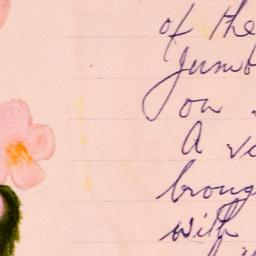 of the
Jumb
on
A v
broug
with